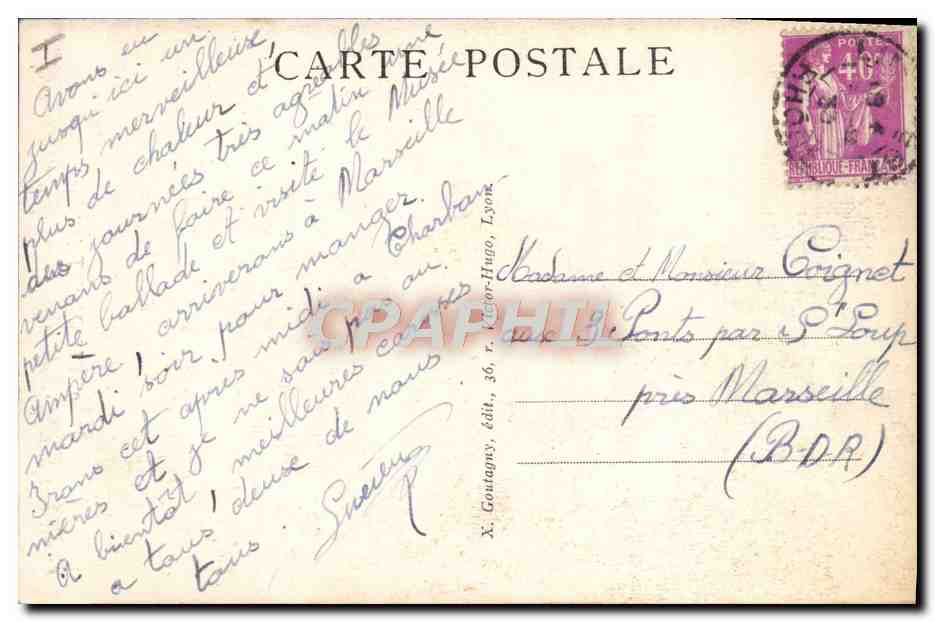 CARTE POSTALE
I
Avons eu
jusqu'ici un
temps merveilleux,
plus de chaleur et
des journées très agréables
venons de faire ce matin une
petite ballade et visité le Musée
Ampère, arriverons à Marseille
mardi soir pour manger.
Irons cet après midi à Charbon
nières et je ne sau pas au
A bientôt, meilleures caresses
a tous deux de nous
tous.
X. Goutagny, édit., 36, r. Victor-Hugo, Lyon.
POSTES
40c
REPUBLIQUE-FRANÇAISE
RHONE
Madame et Monsieur Coignet
aux 3 Ponts par St Loup
près Marseille
(B-D R)
CPAPHIL